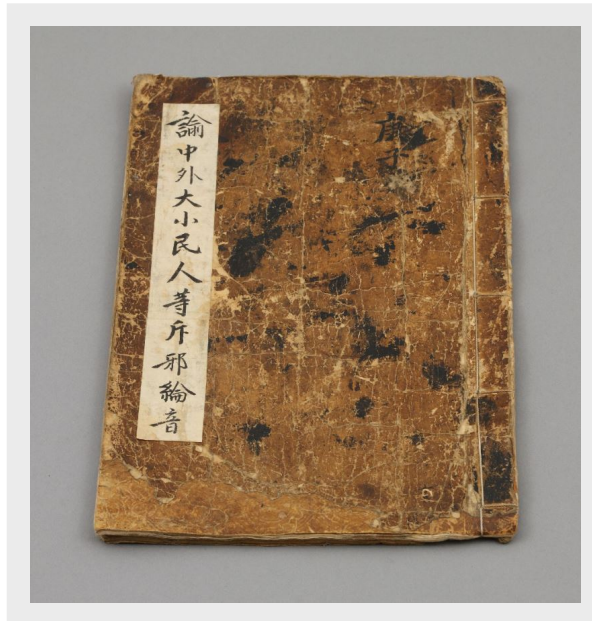 諭中外大小民人等斥邪綸音
庚子